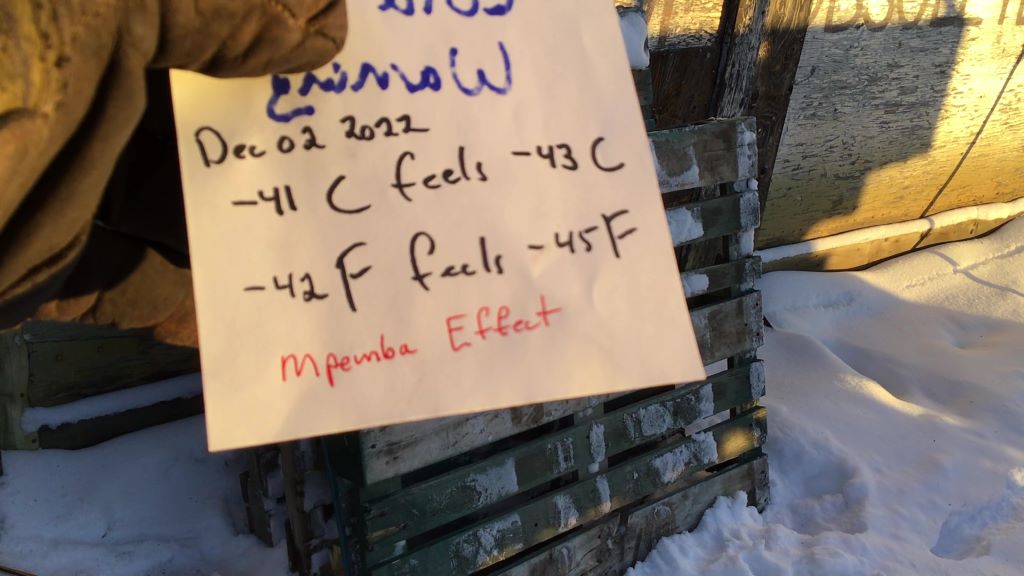 Warning
Dec 02 2022
-41 C feels -43 C
-42 F feels -45 F
Mpemba Effect